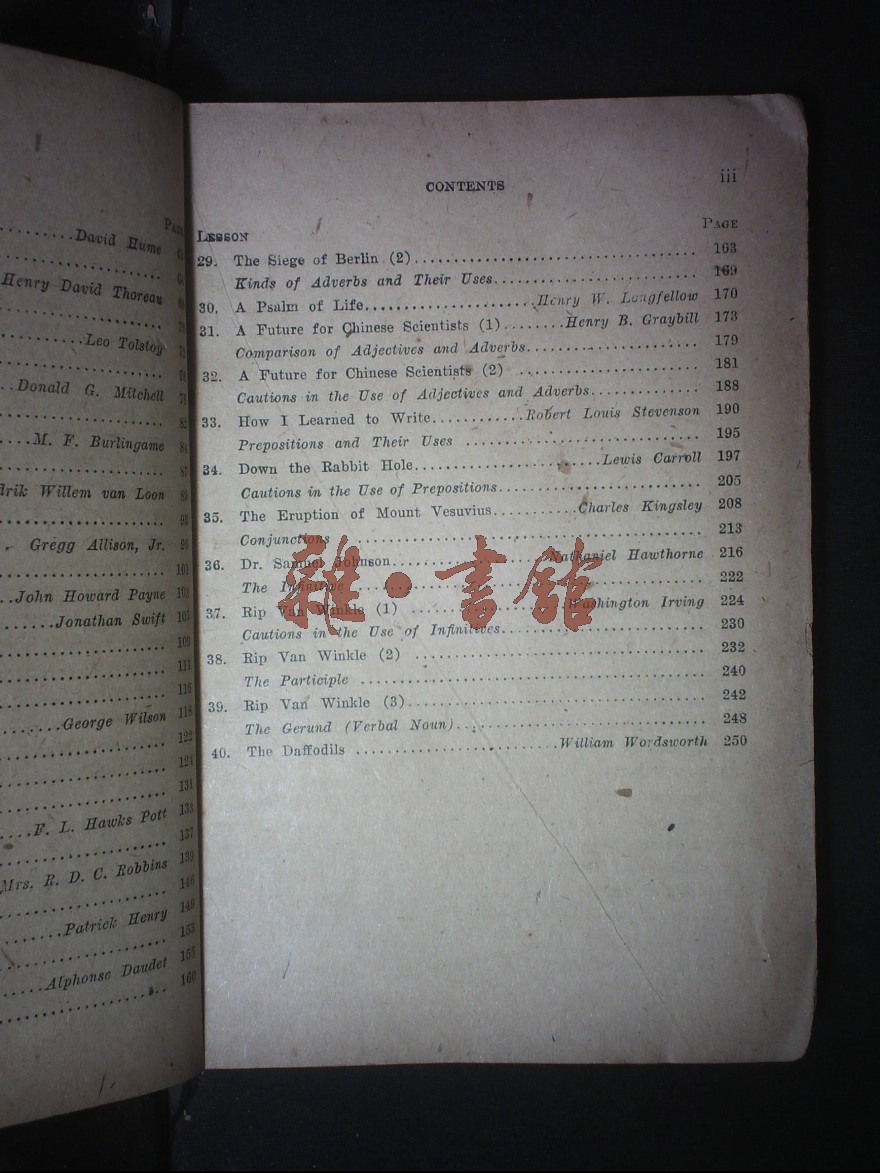 PAGE
David Hume
Henry David Thoreau
Leo Tolstoy
Donald G. Mitchell 78
82
M. F. Burlingame 84
87
drik Willem van Loon 89
93
Gregg Allison, Jr. 96
101
John Howard Payne 103
Jonathan Swift 105
109
111
116
George Wilson 118
122
124
131
F. L. Hawks Pott 133
137
Mrs. R. D. C. Robbins 139
146
Patrick Henry 149
153
Alphonse Daudet 155
160
CONTENTS iii
LESSON PAGE
29. The Siege of Berlin (2) 163
Kinds of Adverbs and Their Uses 169
30. A Psalm of Life Henry W. Longfellow 170
31. A Future for Chinese Scientists (1) Henry B. Graybill 173
Comparison of Adjectives and Adverbs 179
32. A Future for Chinese Scientists (2) 181
Cautions in the Use of Adjectives and Adverbs 188
33. How I Learned to Write Robert Louis Stevenson 190
Prepositions and Their Uses 195
34. Down the Rabbit Hole Lewis Carroll 197
Cautions in the Use of Prepositions 205
35. The Eruption of Mount Vesuvius Charles Kingsley 208
Conjunctions 213
36. Dr. Samuel Johnson Nathaniel Hawthorne 216
The Infinitive 222
37. Rip Van Winkle (1) Washington Irving 224
Cautions in the Use of Infinitives 230
38. Rip Van Winkle (2) 232
The Participle 240
39. Rip Van Winkle (3) 242
The Gerund (Verbal Noun) 248
40. The Daffodils William Wordsworth 250
雜·書館